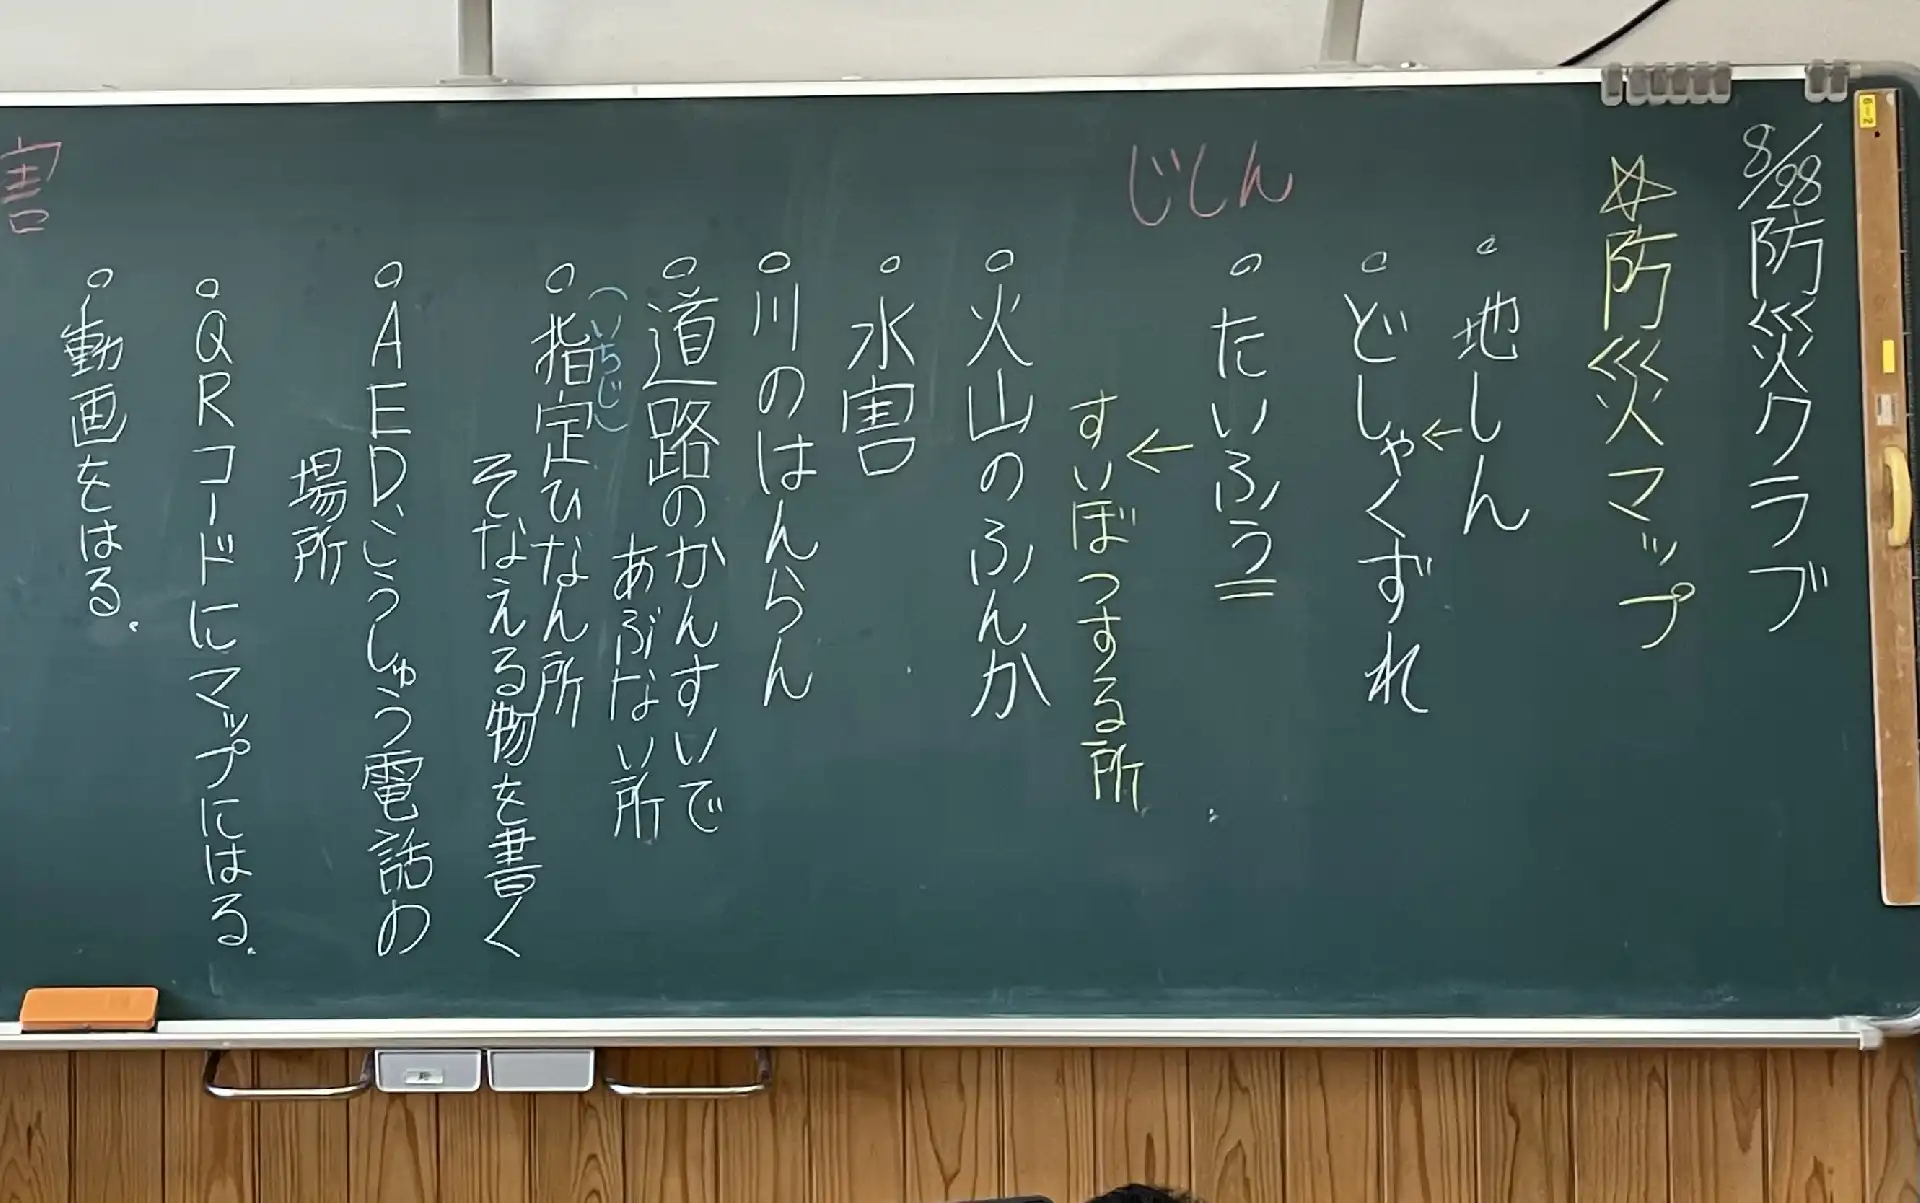 8/28防災クラブ
☆防災マップ
。地しん
←
。どしゃくずれ
じしん
。たいふう
←
すいぼつする所
。火山のふんか
。水害
。川のはんらん
。道路のかんすいで
あぶない所
(いちじ)
。指定ひなん所
そなえる物を書く
。AED、こうしゅう電話の
場所
。QRコードにマップにはる.
。動画をはる.
害